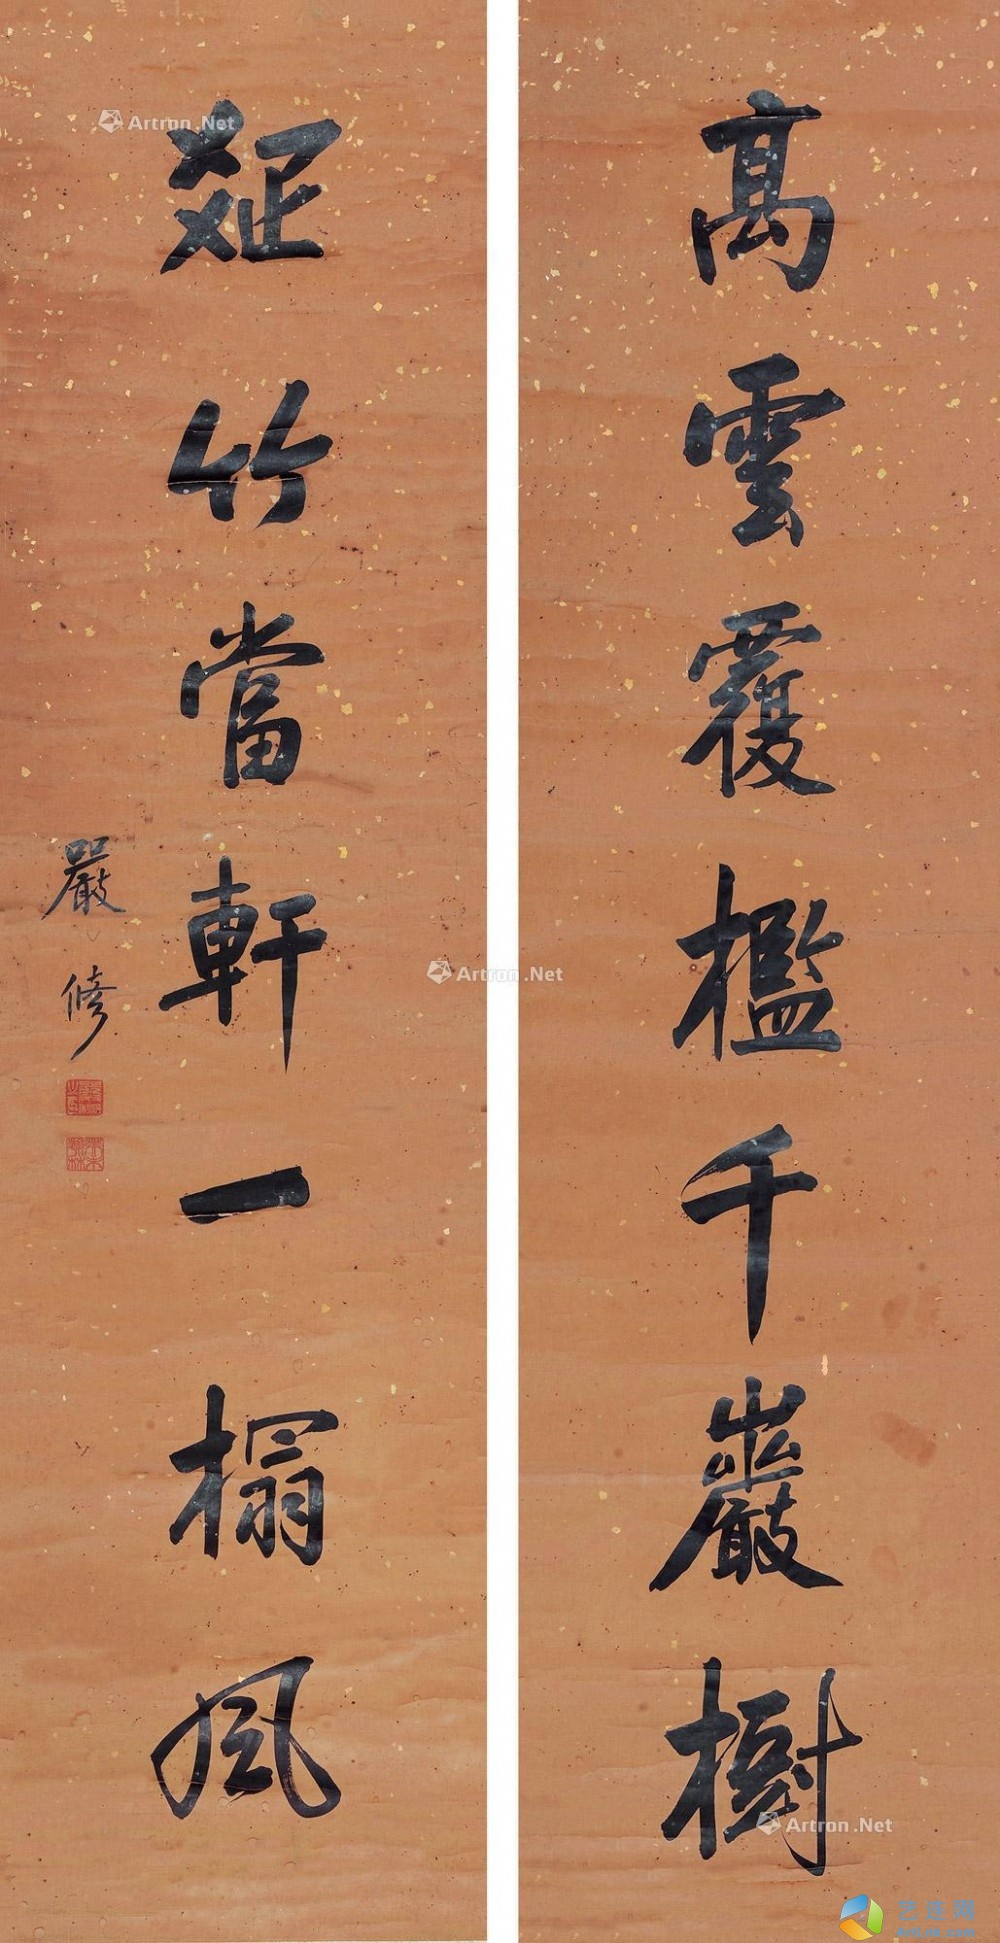 高雲覆檻千巖樹
疏竹當軒一榻風
嚴修
Artron.Net
Artron.Net
Artron.Net
Artron.Net